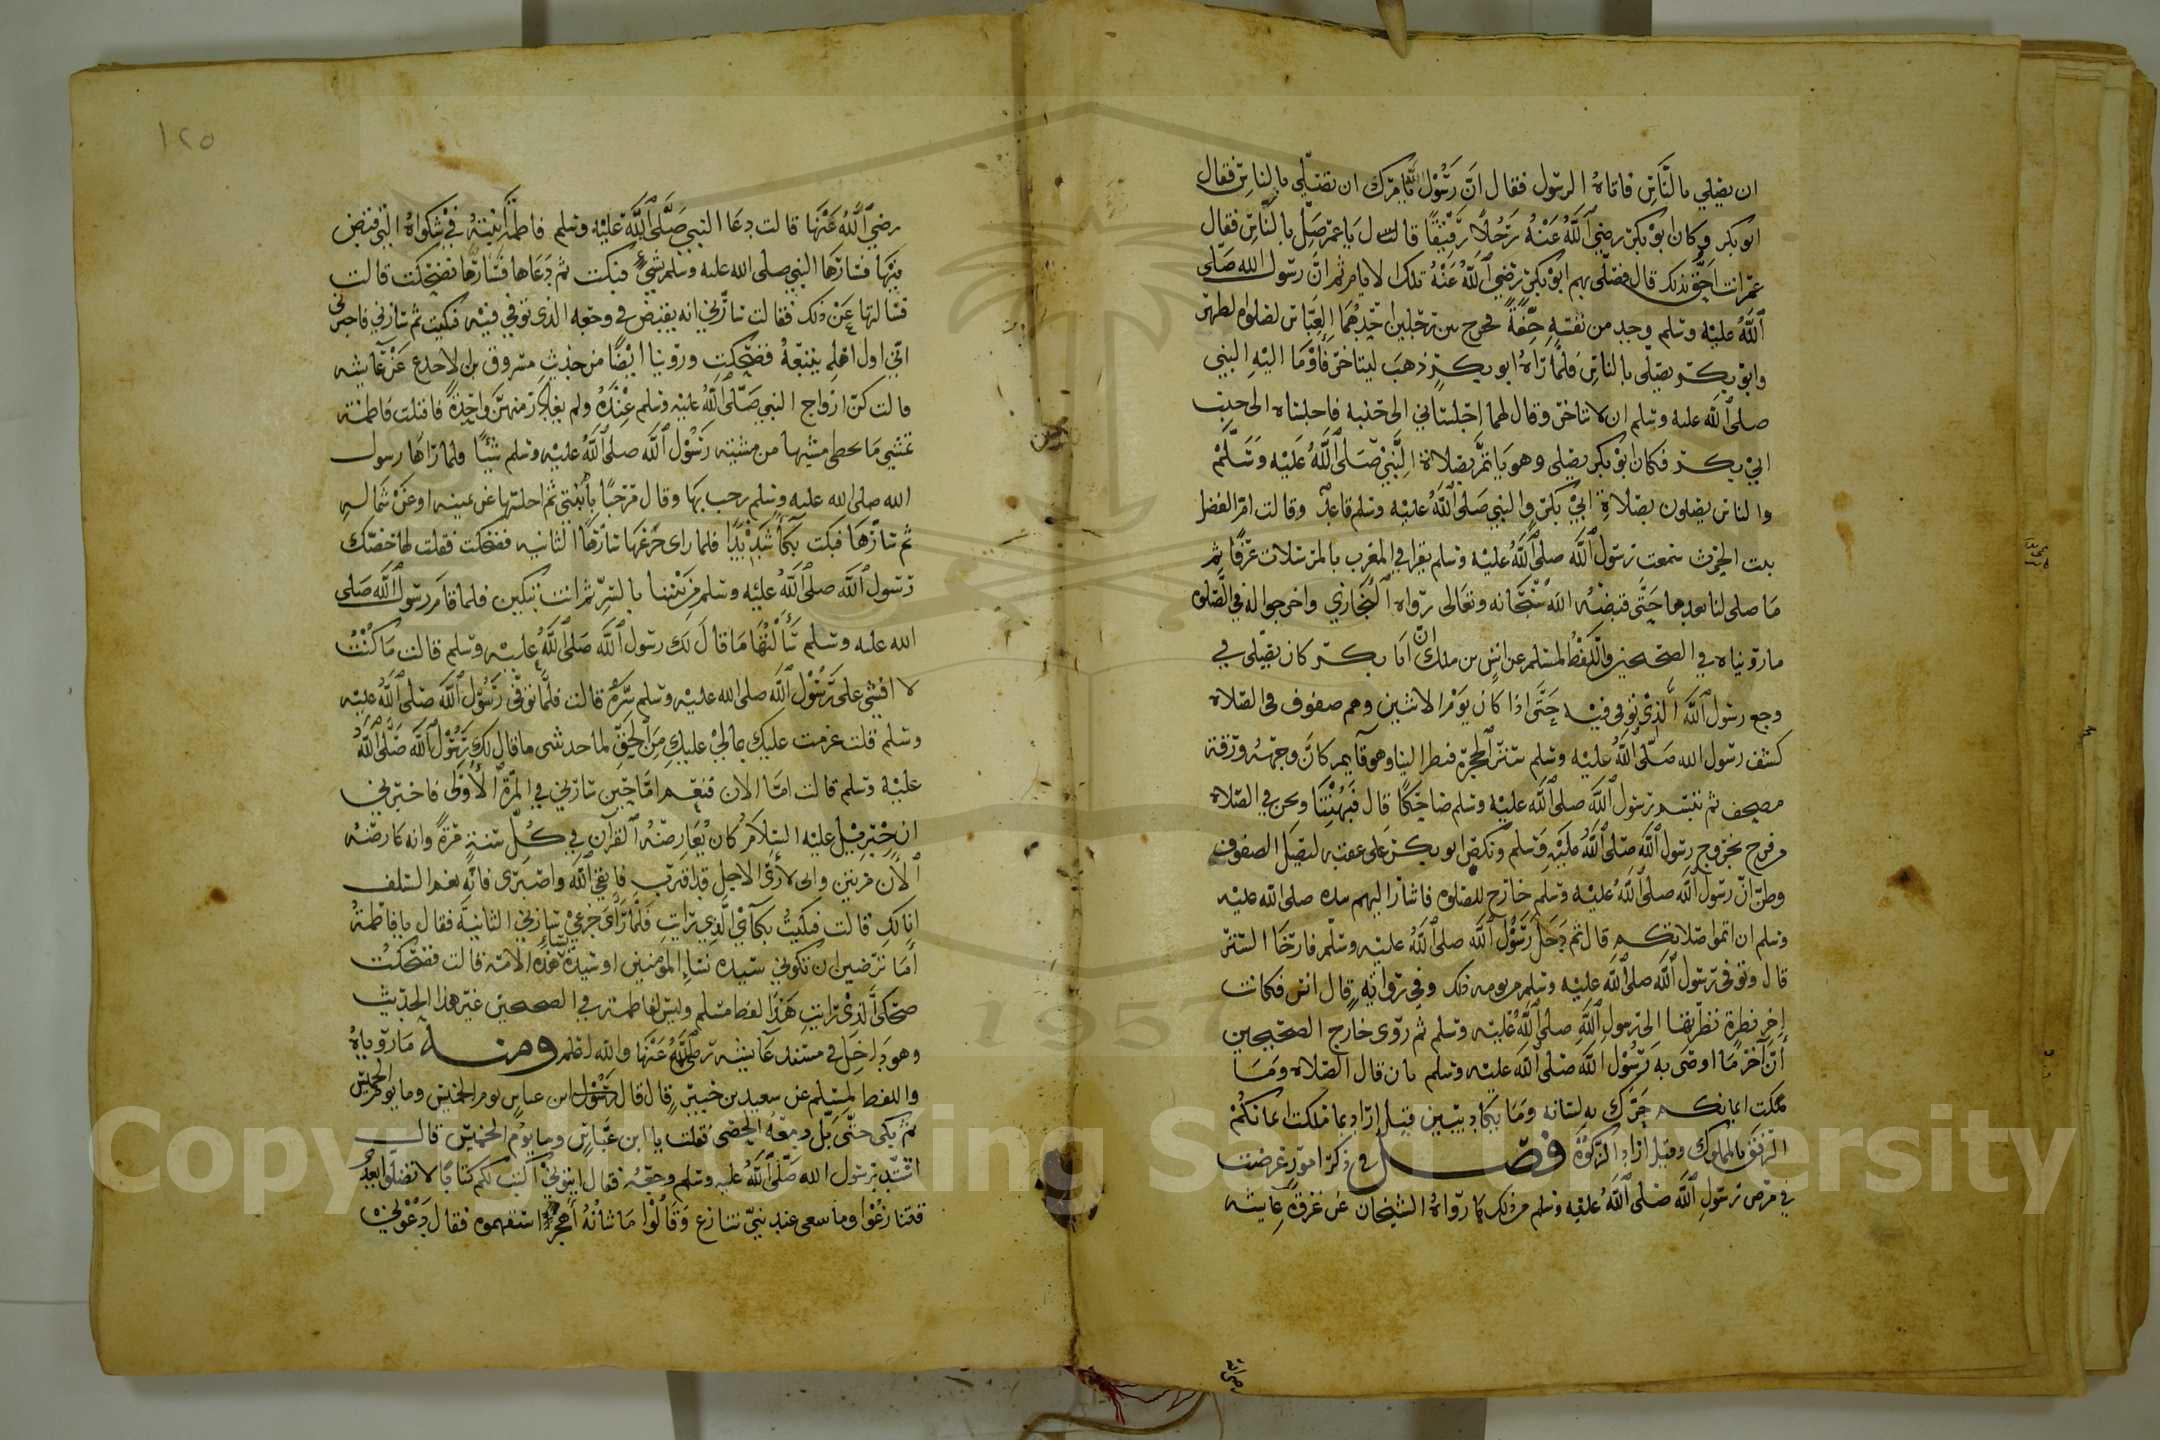 ان يصلي بالناس فاتاه الرسول فقال ان رسول الله يامرك ان تصلي بالناس فقال
ابو بكر وكان ابو بكر رضي الله عنه رجلا رقيقا قالت ل يا عمر صل بالناس فقال
عمر انت احق بذلك قال فصلى بهم ابو بكر رضي الله عنه تلك الايام ثم ان رسول الله صلى
الله عليه وسلم وجد من نفسه خفة فخرج بين رجلين احدهما العباس لصلوة الظهر
وابو بكر يصلي بالناس فلما راه ابو بكر ذهب ليتاخر فاومأ اليه النبي
صلى الله عليه وسلم ان لا تتاخر وقال لهما اجلساني الى جنبه فاجلساه الى جنب
ابي بكر فكان ابو بكر يصلي وهو ياتم بصلاة النبي صلى الله عليه وسلم
والناس يصلون بصلاة ابي بكر والنبي صلى الله عليه وسلم قاعد وقالت ام الفضل
بنت الحرث سمعت رسول الله صلى الله عليه وسلم يقرا في المغرب بالمرسلات عرفا ثم
ما صلى لنا بعدها حتى قبضه الله سبحانه وتعالى رواه البخاري واخر حواله في الصلوة
ما رويناه في الصحيحين واللفظ لمسلم عن انس بن ملك ان ابا بكر كان يصلي في
وجع رسول الله الذي توفي فيه حتى اذا كان يوم الاثنين وهم صفوف في الصلاة
كشف رسول الله صلى الله عليه وسلم ستر الحجرة فنظر الينا وهو قايم كان وجهه ورقة
مصحف ثم تبسم رسول الله صلى الله عليه وسلم ضاحكا قال فبهتنا ونحن في الصلاة
من فرح بخروج رسول الله صلى الله عليه وسلم ونكص ابو بكر على عقبه ليصل الصفوف
وظن ان رسول الله صلى الله عليه وسلم خارج للصلوة فاشار اليهم بيده صلى الله عليه
وسلم ان اتموا صلاتكم قال ثم دخل رسول الله صلى الله عليه وسلم فارخا الستر
قال وتوفي رسول الله صلى الله عليه وسلم من يومه ذلك وفي رواية قال انس فكانت
اخر نظرة نظرتها الى رسول الله صلى الله عليه وسلم ثم روى خارج الصحيحين
ان آخر ما اوصى به رسول الله صلى الله عليه وسلم بان قال الصلاة وما
ملكت ايمانكم حرك به لسانه وما يكاد يبين قيل اراد بما ملكت ايمانكم
الرفق بالمملوك وقيل اراد الزكوة فصل في ذكر امور عرضت
في مرض رسول الله صلى الله عليه وسلم من ذلك ما رواه الشيخان عن عروة عن عايشه
رضي
١٢٥
رضي الله عنها قالت دعا النبي صلى الله عليه وسلم فاطمة ابنته في شكواه التي قبض
فيها فسارها النبي صلى الله عليه وسلم بشيء فبكت ثم دعاها فسارها فضحكت قالت
فسالتها عن ذلك فقالت سارني انه يقبض في وجعه الذي توفي فيه فبكيت ثم سارني فاخبرني
اني اول اهله يتبعه فضحكت وروينا ايضا من حديث مسروق بن الاجدع عن عايشه
قالت كن ازواج النبي صلى الله عليه وسلم عنده ولم يغادر منهن واحدة فاقبلت فاطمة
تمشي ما تخطي مشيتها من مشية رسول الله صلى الله عليه وسلم شيئا فلما راها رسول
الله صلى الله عليه وسلم رحب بها وقال مرحبا بابنتي ثم اجلسها عن يمينه او عن شماله
ثم سارها فبكت بكاء شديدا فلما راى جزعها سارها الثانيه فضحكت فقلت لها خصك
رسول الله صلى الله عليه وسلم من بيننا بالسر ثم انت تبكين فلما قام رسول الله صلى
الله عليه وسلم سألتها ما قال لك رسول الله صلى الله عليه وسلم قالت ما كنت
لا افشي على رسول الله صلى الله عليه وسلم سره قالت فلما توفي رسول الله صلى الله عليه
وسلم قلت عزمت عليك بمالي عليك من الحق لما حدثتني ما قال لك رسول الله صلى الله
عليه وسلم قالت اما الان فنعم اما حين سارني في المرة الاولى فاخبرني
ان جبريل عليه السلام كان يعارضه القرآن في كل سنة مرة وانه عارضه
الآن مرتين واني لا ارى الاجل قد اقترب فاتقي الله واصبري فانه نعم السلف
انا لك قالت فبكيت بكاي الذي رايت فلما رأى جزعي سارني الثانية فقال يا فاطمة
أما ترضين ان تكوني سيدة نساء المؤمنين او سيدة نساء هذه الامة قالت فضحكت
ضحكي الذي رايت هذا لفظ مسلم وليس لفاطمة في الصحيحين غير هذا الحديث
وهو داخل في مسند عايشه رضي الله عنها والله اعلم ومنه ما روياه
واللفظ لمسلم عن سعيد بن جبير قال قال ابن عباس يوم الخميس وما يوم الخميس
ثم بكى حتى بل دمعه الحصى فقلت يا ابن عباس وما يوم الخميس قال
اشتد برسول الله صلى الله عليه وسلم وجعه فقال ايتوني اكتب لكم كتابا لا تضلوا بعدي
فتنازعوا وما ينبغي عند نبي تنازع وقالوا ما شأنه أهجر استفهموه فقال دعوني
Copyright © King Saud University
1957